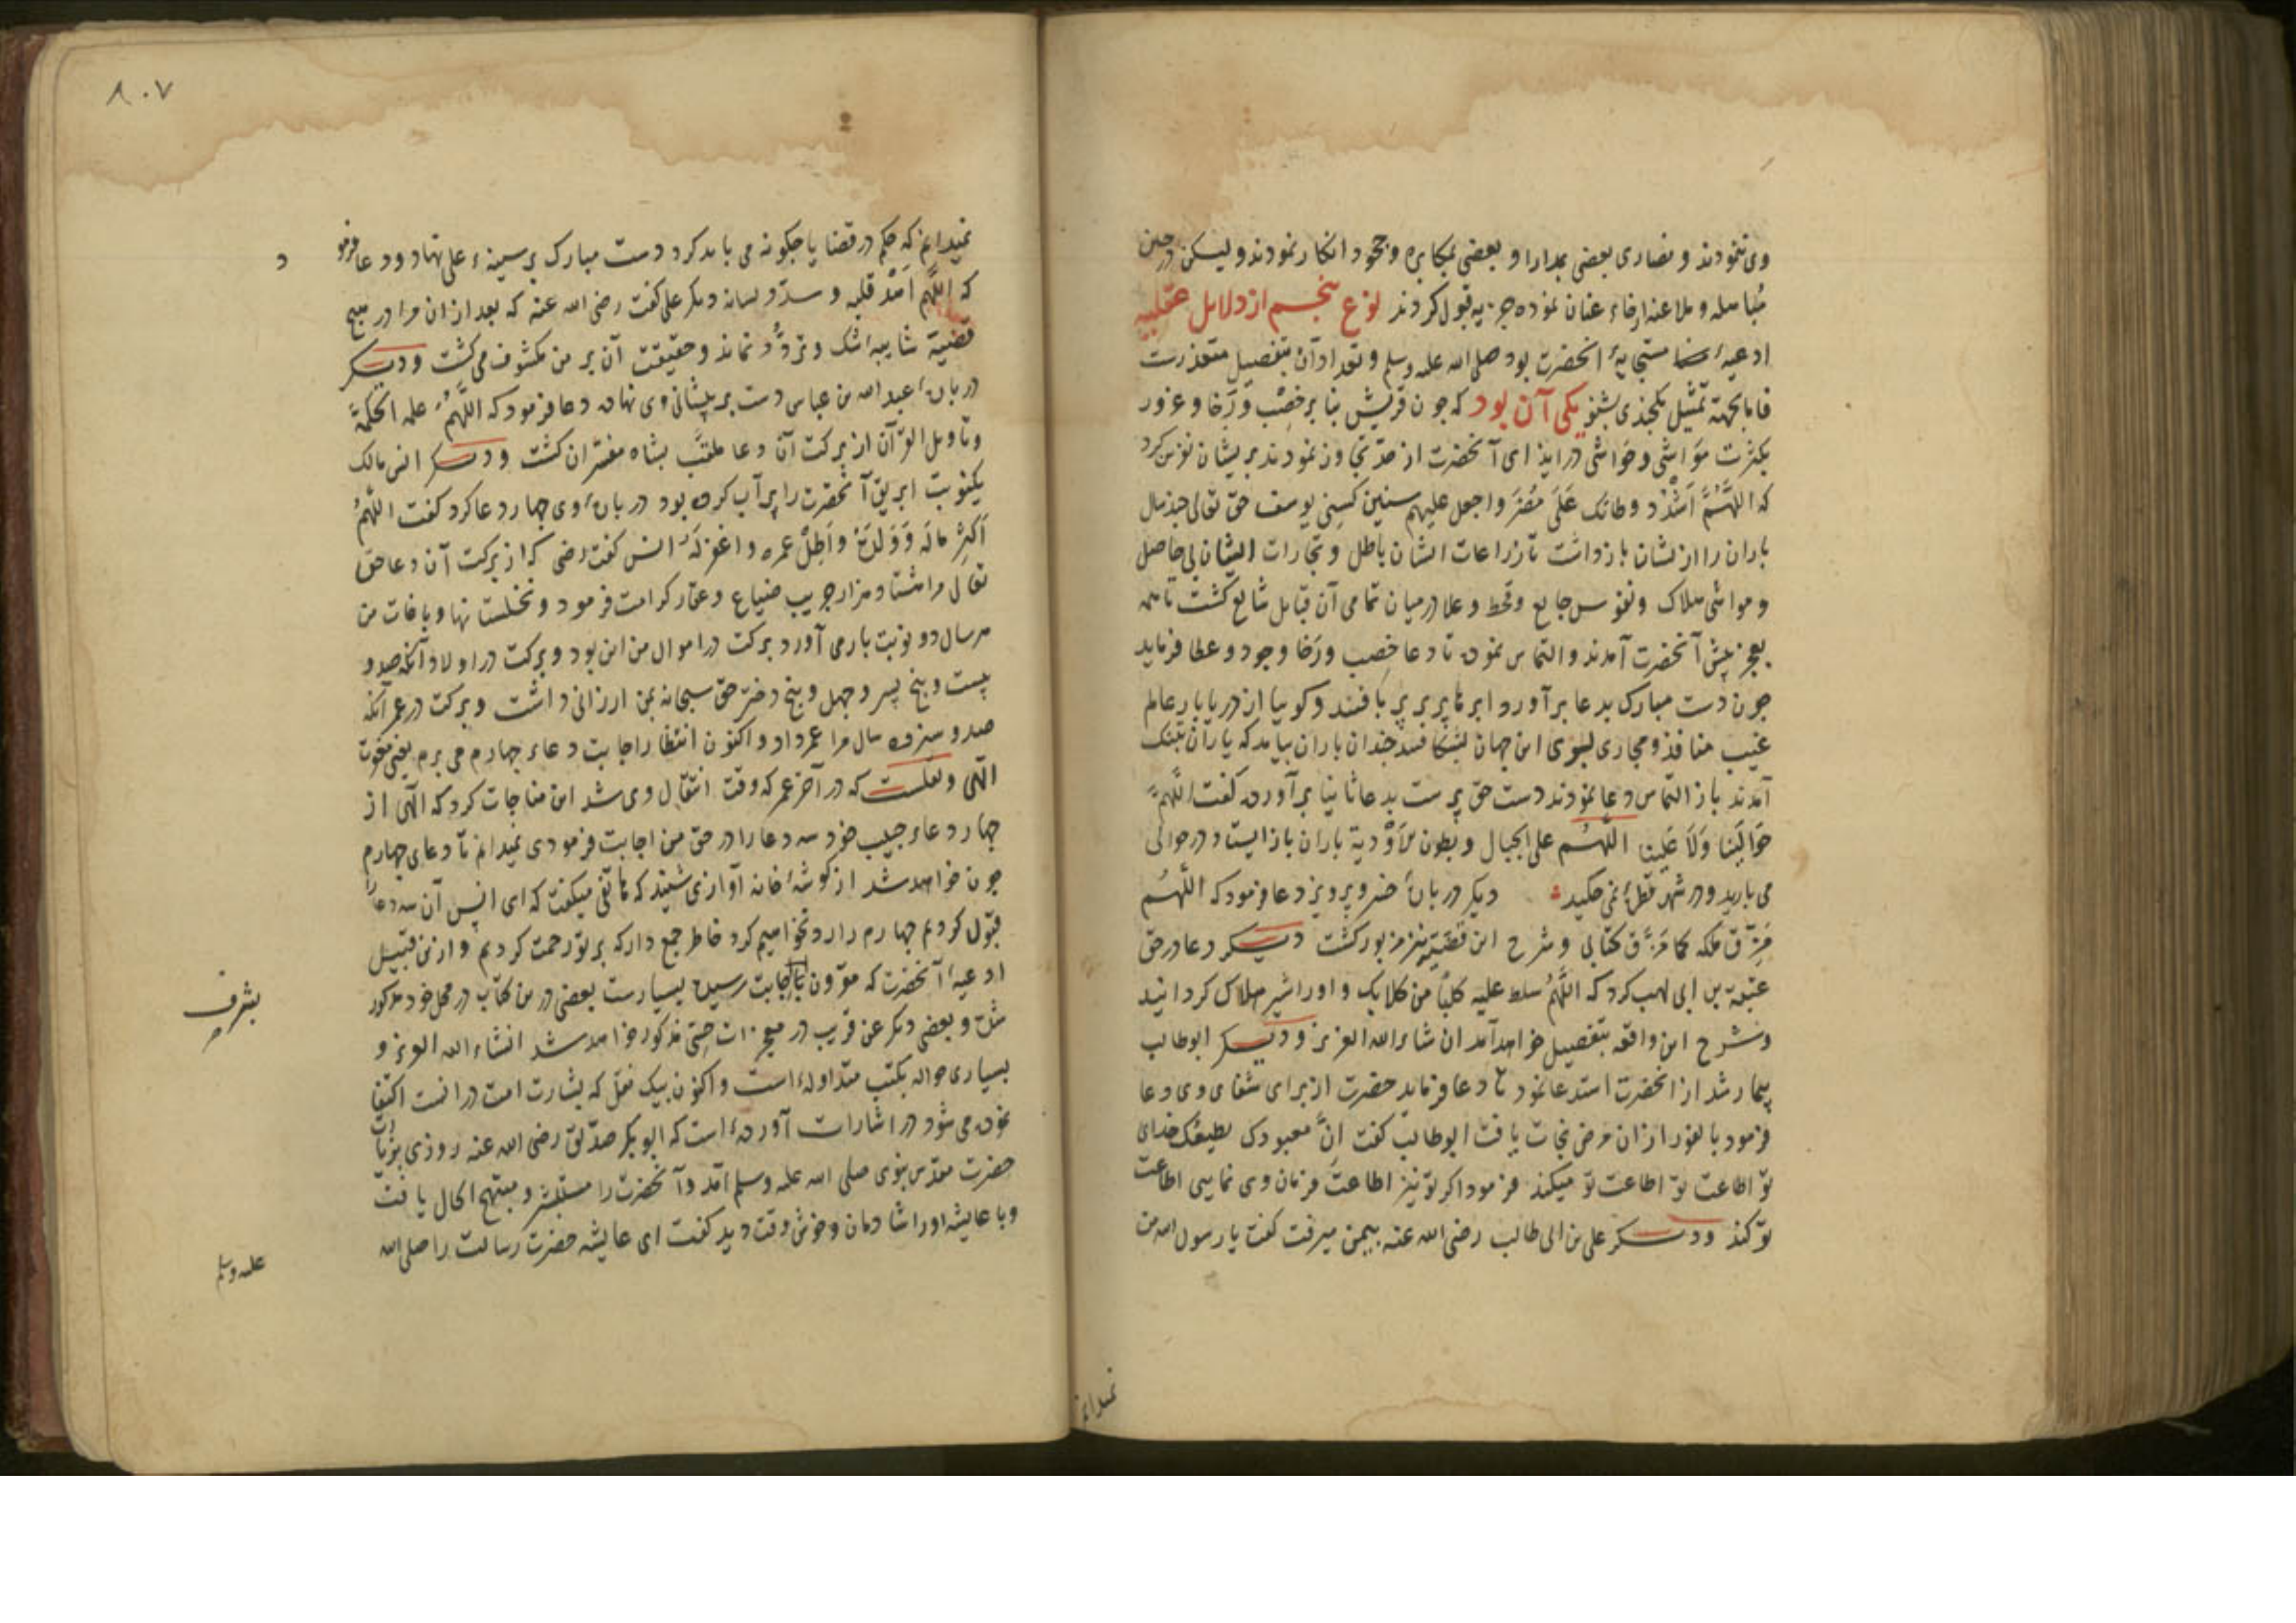 وی ننمودند و نصاری بعضی بمدارا و بعضی بمکابره و جحود انکار نمودند و لیکن در حین
مباهله و ملاعنه ارخاء عنان نموده جزیه قبول کردند نوع پنجم از دلایل عقلیه
ادعیهٔ مستجابهٔ آنحضرت بود صلی الله علیه وسلم و تعداد آن بتفصیل متعذرست
فاما بجهة تمثیل یکچندی بشنو یکی آن بود که چون قریش بنا بر خصب و رخا و غرور
بکثرت مواشی و حواشی در ایذای آنحضرت از حد تجاوز نمودند بریشان نفرین کرد
که اللهم اشدد وطاتک علی مضر واجعل علیهم سنین کسنی یوسف حق تعالی چند سال
باران را از یشان بازداشت تا زراعات ایشان باطل و تجارات ایشان بی حاصل
و مواشی هلاک و نفوس جایع و قحط و غلا در میان تمامی آن قبایل شایع کشت تا همه
بعجز پیش آنحضرت آمدند و التماس نموده تا دعا خصب و رخا وجود و عطا فرماید
چون دست مبارک بدعا برآورد ابرها پر بر پر بافتند و کوییا از دریابار عالم
غیب منافذ و مجاری بسوی این جهان بشکافتند چندان باران بیامد که یاران بتنک
آمدند باز التماس دعا نمودند دست حق پرست بدعا ثانیا برآورده کفت اللهم
حوالینا ولا علینا اللهم علی الجبال و بطون الاودیة باران بازایستاد در حوالی
می بارید و در شهر قطرهٔ نمی چکید دیکر در بارهٔ خسرو پرویز دعا فرمود که اللهم
مزق ملکه کما مزق کتابی و شرح این قضیه نیز مزبور کشت دیکر دعا در حق
عتبة بن ابی لهب کرد که اللهم سلط علیه کلبا من کلابک و او را شیر هلاک کردانید
و شرح این واقعه بتفصیل خواهد آمد ان شاء الله العزیز و دیکر ابوطالب
بیمار شد از آنحضرت استدعا نمود تا دعا فرماید حضرت از برای شفای وی دعا
فرمود بالفور از ان مرض نجات یافت ابوطالب کفت ان معبودک یطیعک خدای
تو اطاعت تو میکند فرمود اکر تو نیز اطاعت فرمان وی نمایی اطاعت
تو کند و دیکر علی بن ابی طالب رضی الله عنه بیمن میرفت کفت یا رسول الله من
نمیدانم
۸۰۷
نمیدانم که حکم در قضایا چکونه می باید کرد دست مبارک بر سینهٔ علی نهاد و دعا فرمو
د
که اللهم اهد قلبه و سدد لسانه دیکر علی کفت رضی الله عنه که بعد از ان مرا در هیچ
قضیة شایبهٔ شک و تردد نماند و حقیقت آن بر من مکشوف می کشت و دیکر
در بارهٔ عبد الله بن عباس دست بر پیشانی وی نهاده دعا فرمود که اللهم علمه الحکمة
و تاویل القرآن از برکت آن دعا ملقب بشاه مفسران کشت و دیکر انس مالک
یکنوبت ابریق آنحضرت را پر آب کرده بود در بارهٔ وی چهار دعا کرد کفت اللهم
اکثر ماله و ولده واطل عمره واغفر له انس کفت رضی که از برکت آن دعا حق
تعالی مرا هشتاد هزار جریب ضیاع و عقار کرامت فرمود و نخلستانها و باغات من
هر سال دو نوبت بار می آورد برکت در اموال من این بود و برکت در اولاد آنکه صد و
بیست و پنج پسر و چهل و پنج دختر حق سبحانه بمن ارزانی داشت و برکت در عمر آنکه
صد و سیزده سال مرا عمر داد و اکنون انتظار اجابت دعاء چهارم می برم یعنی مغفرت
الهی و نقلست که در آخر عمر که وقت انتقال وی شد این مناجات کرد که الهی از
چهار دعاء حبیب خود سه دعا را در حق من اجابت فرمودی نمیدانم تا دعای چهارم
چون خواهد شد از کوشهٔ خانه آوازی شنید که هاتفی میکفت که ای انس آن سه دعا را
قبول کردیم چهارم را رد نخواهیم کرد خاطر جمع دار که بر تو رحمت کردیم و ازین قبیل
ادعیهٔ آنحضرت که مقرون باجابت رسیده بسیارست بعضی درین کتاب در محل خود مذکور
بشرف
شد و بعضی دیکر عن قریب در معجزات حسی مذکور خواهد شد انشاء الله العزیز و
بسیاری حواله بکتب متداوله است و اکنون بیک نقل که بشارت امت در انست اکتفا
نموده می شود در اشارات آورده است که ابوبکر صدیق رضی الله عنه روزی بزیارت
حضرت مقدس نبوی صلی الله علیه وسلم آمد و آنحضرت را مستبشر و مبتهج الحال یافت
و با عایشه او را شادمان و خوش وقت دید کفت ای عایشه حضرت رسالت را صلی الله
علیه وسلم